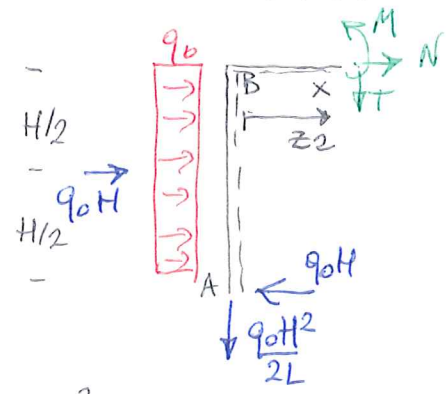 q₀
M
N
B
x
T
H/2
z2
q₀H
H/2
A
q₀H
q₀H²
2L